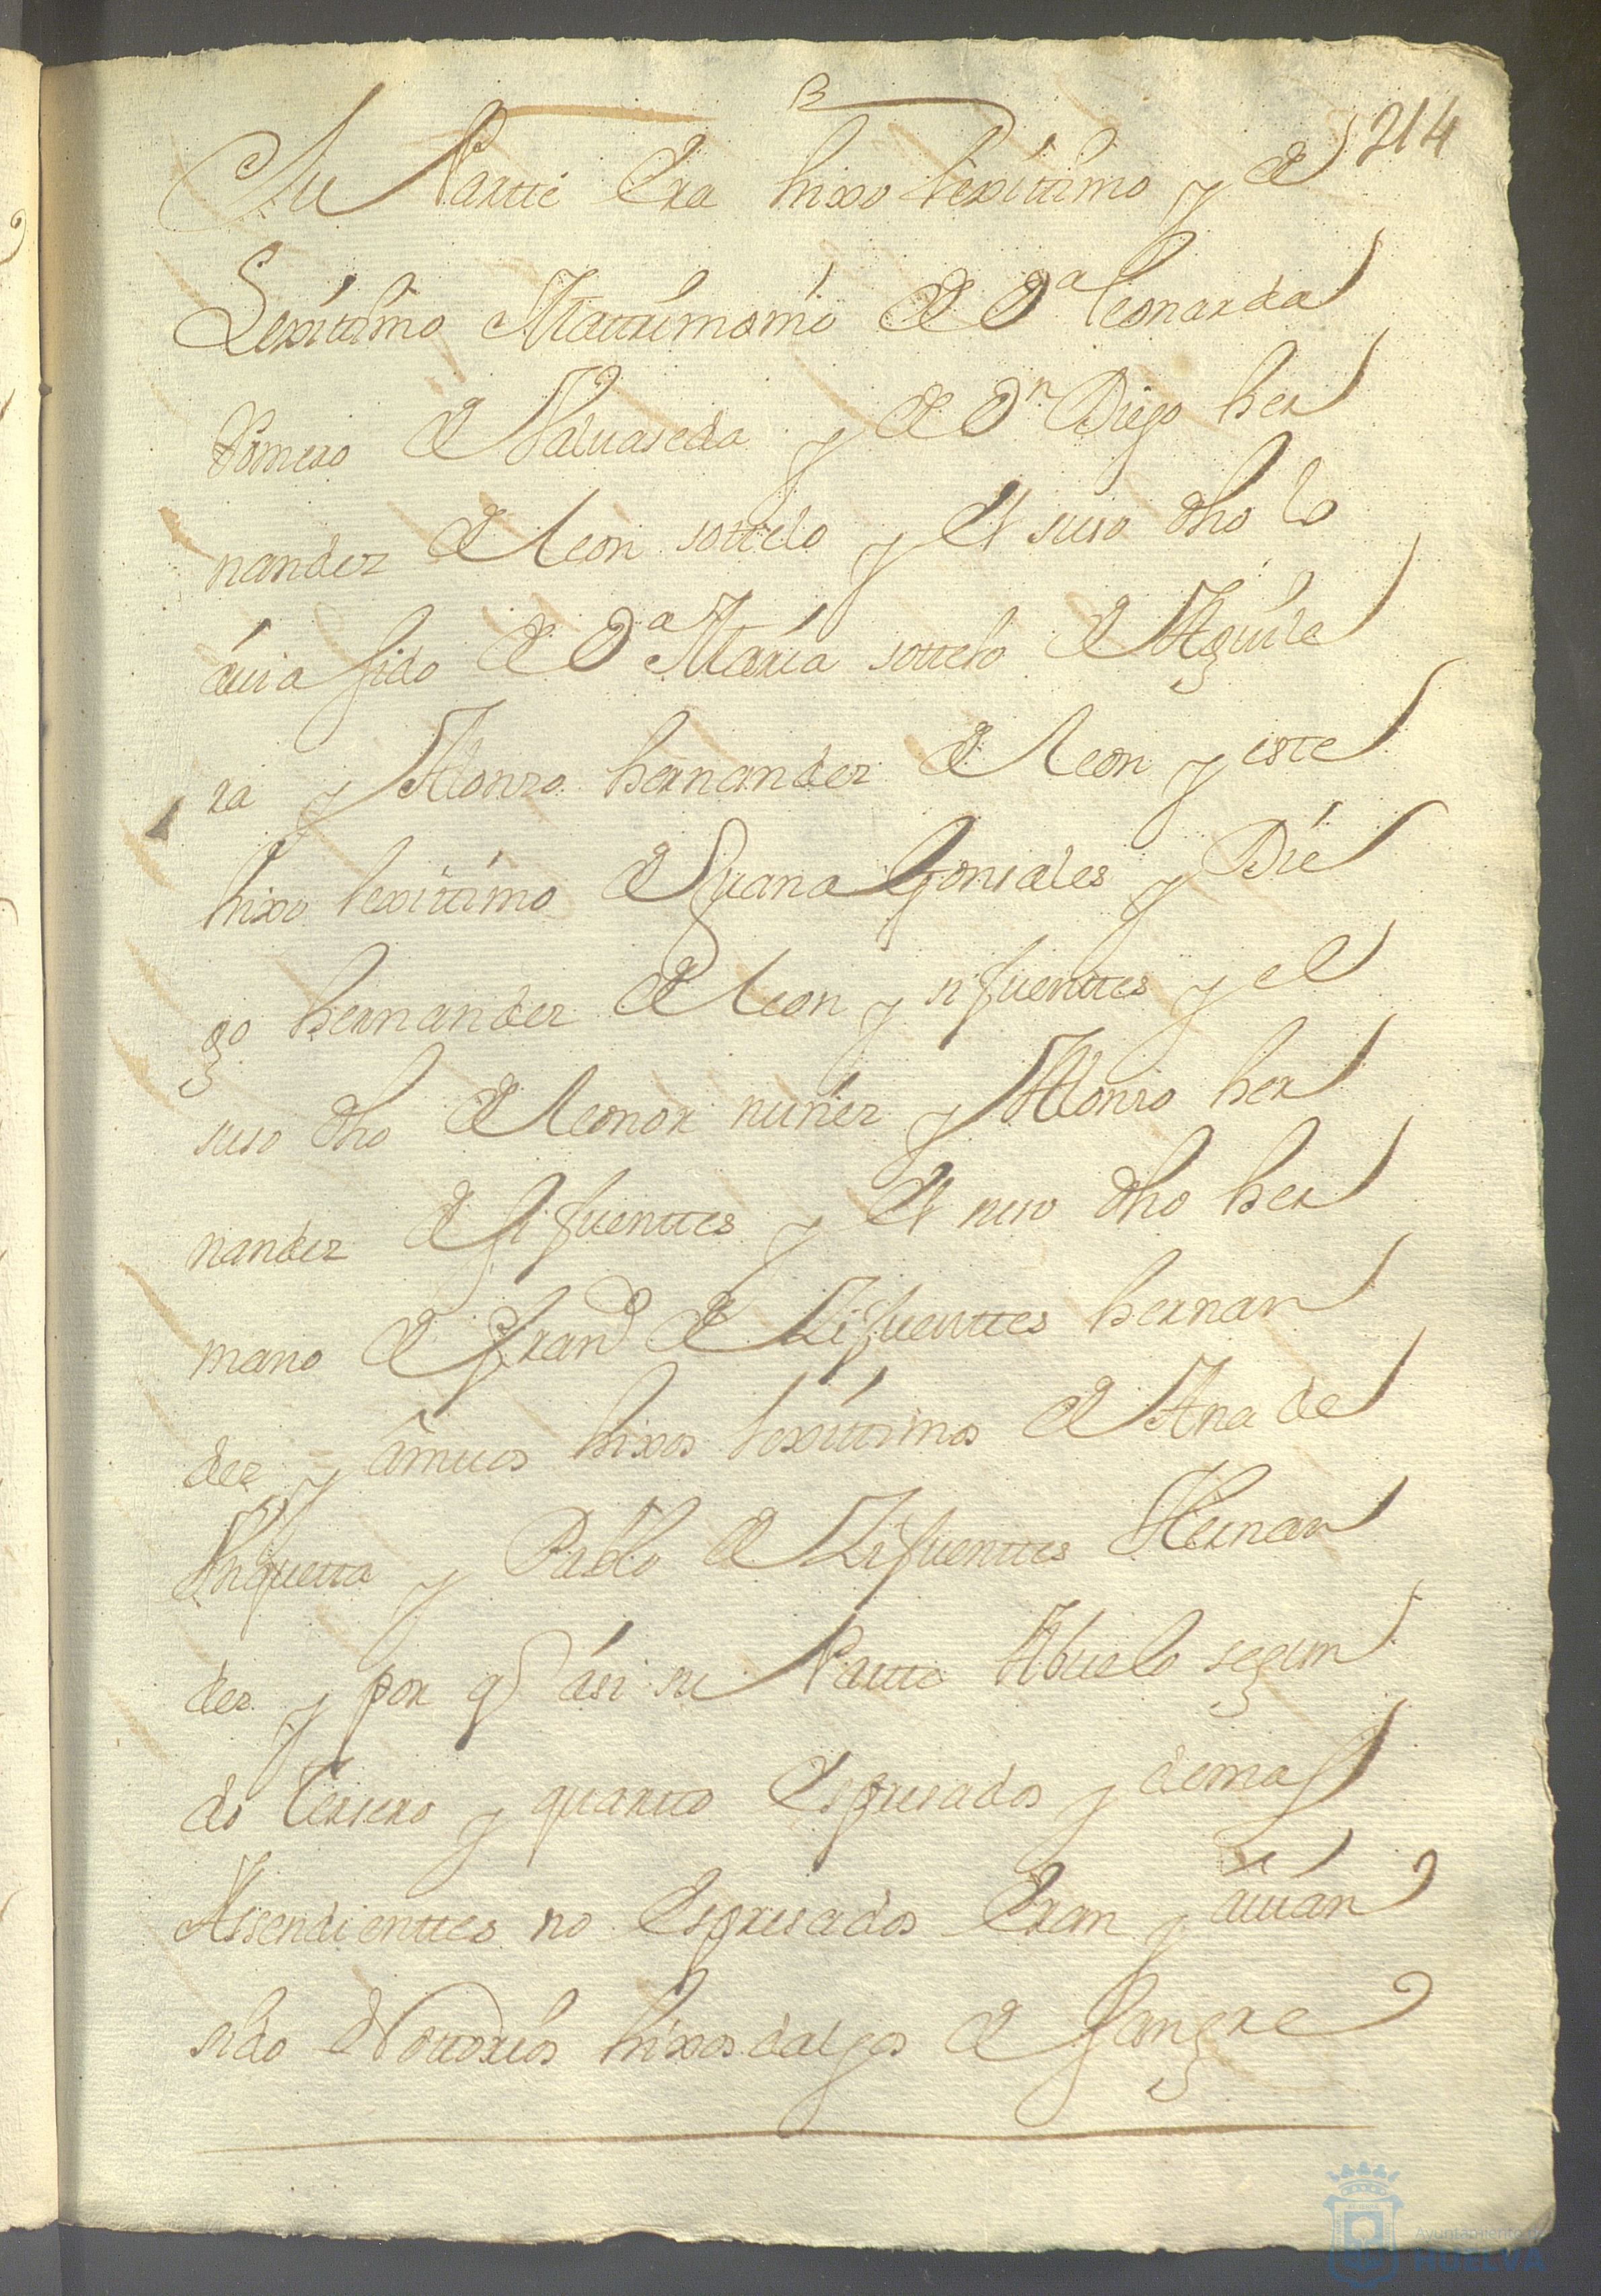 214
Su Partte Era hixo lexittimo y de
Lexittimo Mattrimonio de Da leonarda
Romero de Valuaseda y de Dn Diego her
nandez de leon sottelo y el suso dho lo
auia sido de Da Maria sottelo de Aguile
ra y Alonzo hernandez de leon y este
hixo lexittimo de Juana Gonsales y Die
go hernandez de leon y sifuenttes y el
suso dho de leonor nuñez y Alonso her
nandez de sifuenttes y el suso dho her
mano de Frando de Zifuenttes hernan
dez y amuos hixos lexittimos de Ana de
y Pablo de Zifuenttes Hernan
dez y por q asi su Partte Abuelo segun
do tersero y quarto Espresados y demas
Assendienttes no Espresados Eran y auian
sido Nottorios hixosdalgos de Sangre
Ayuntamiento de
HUELVA